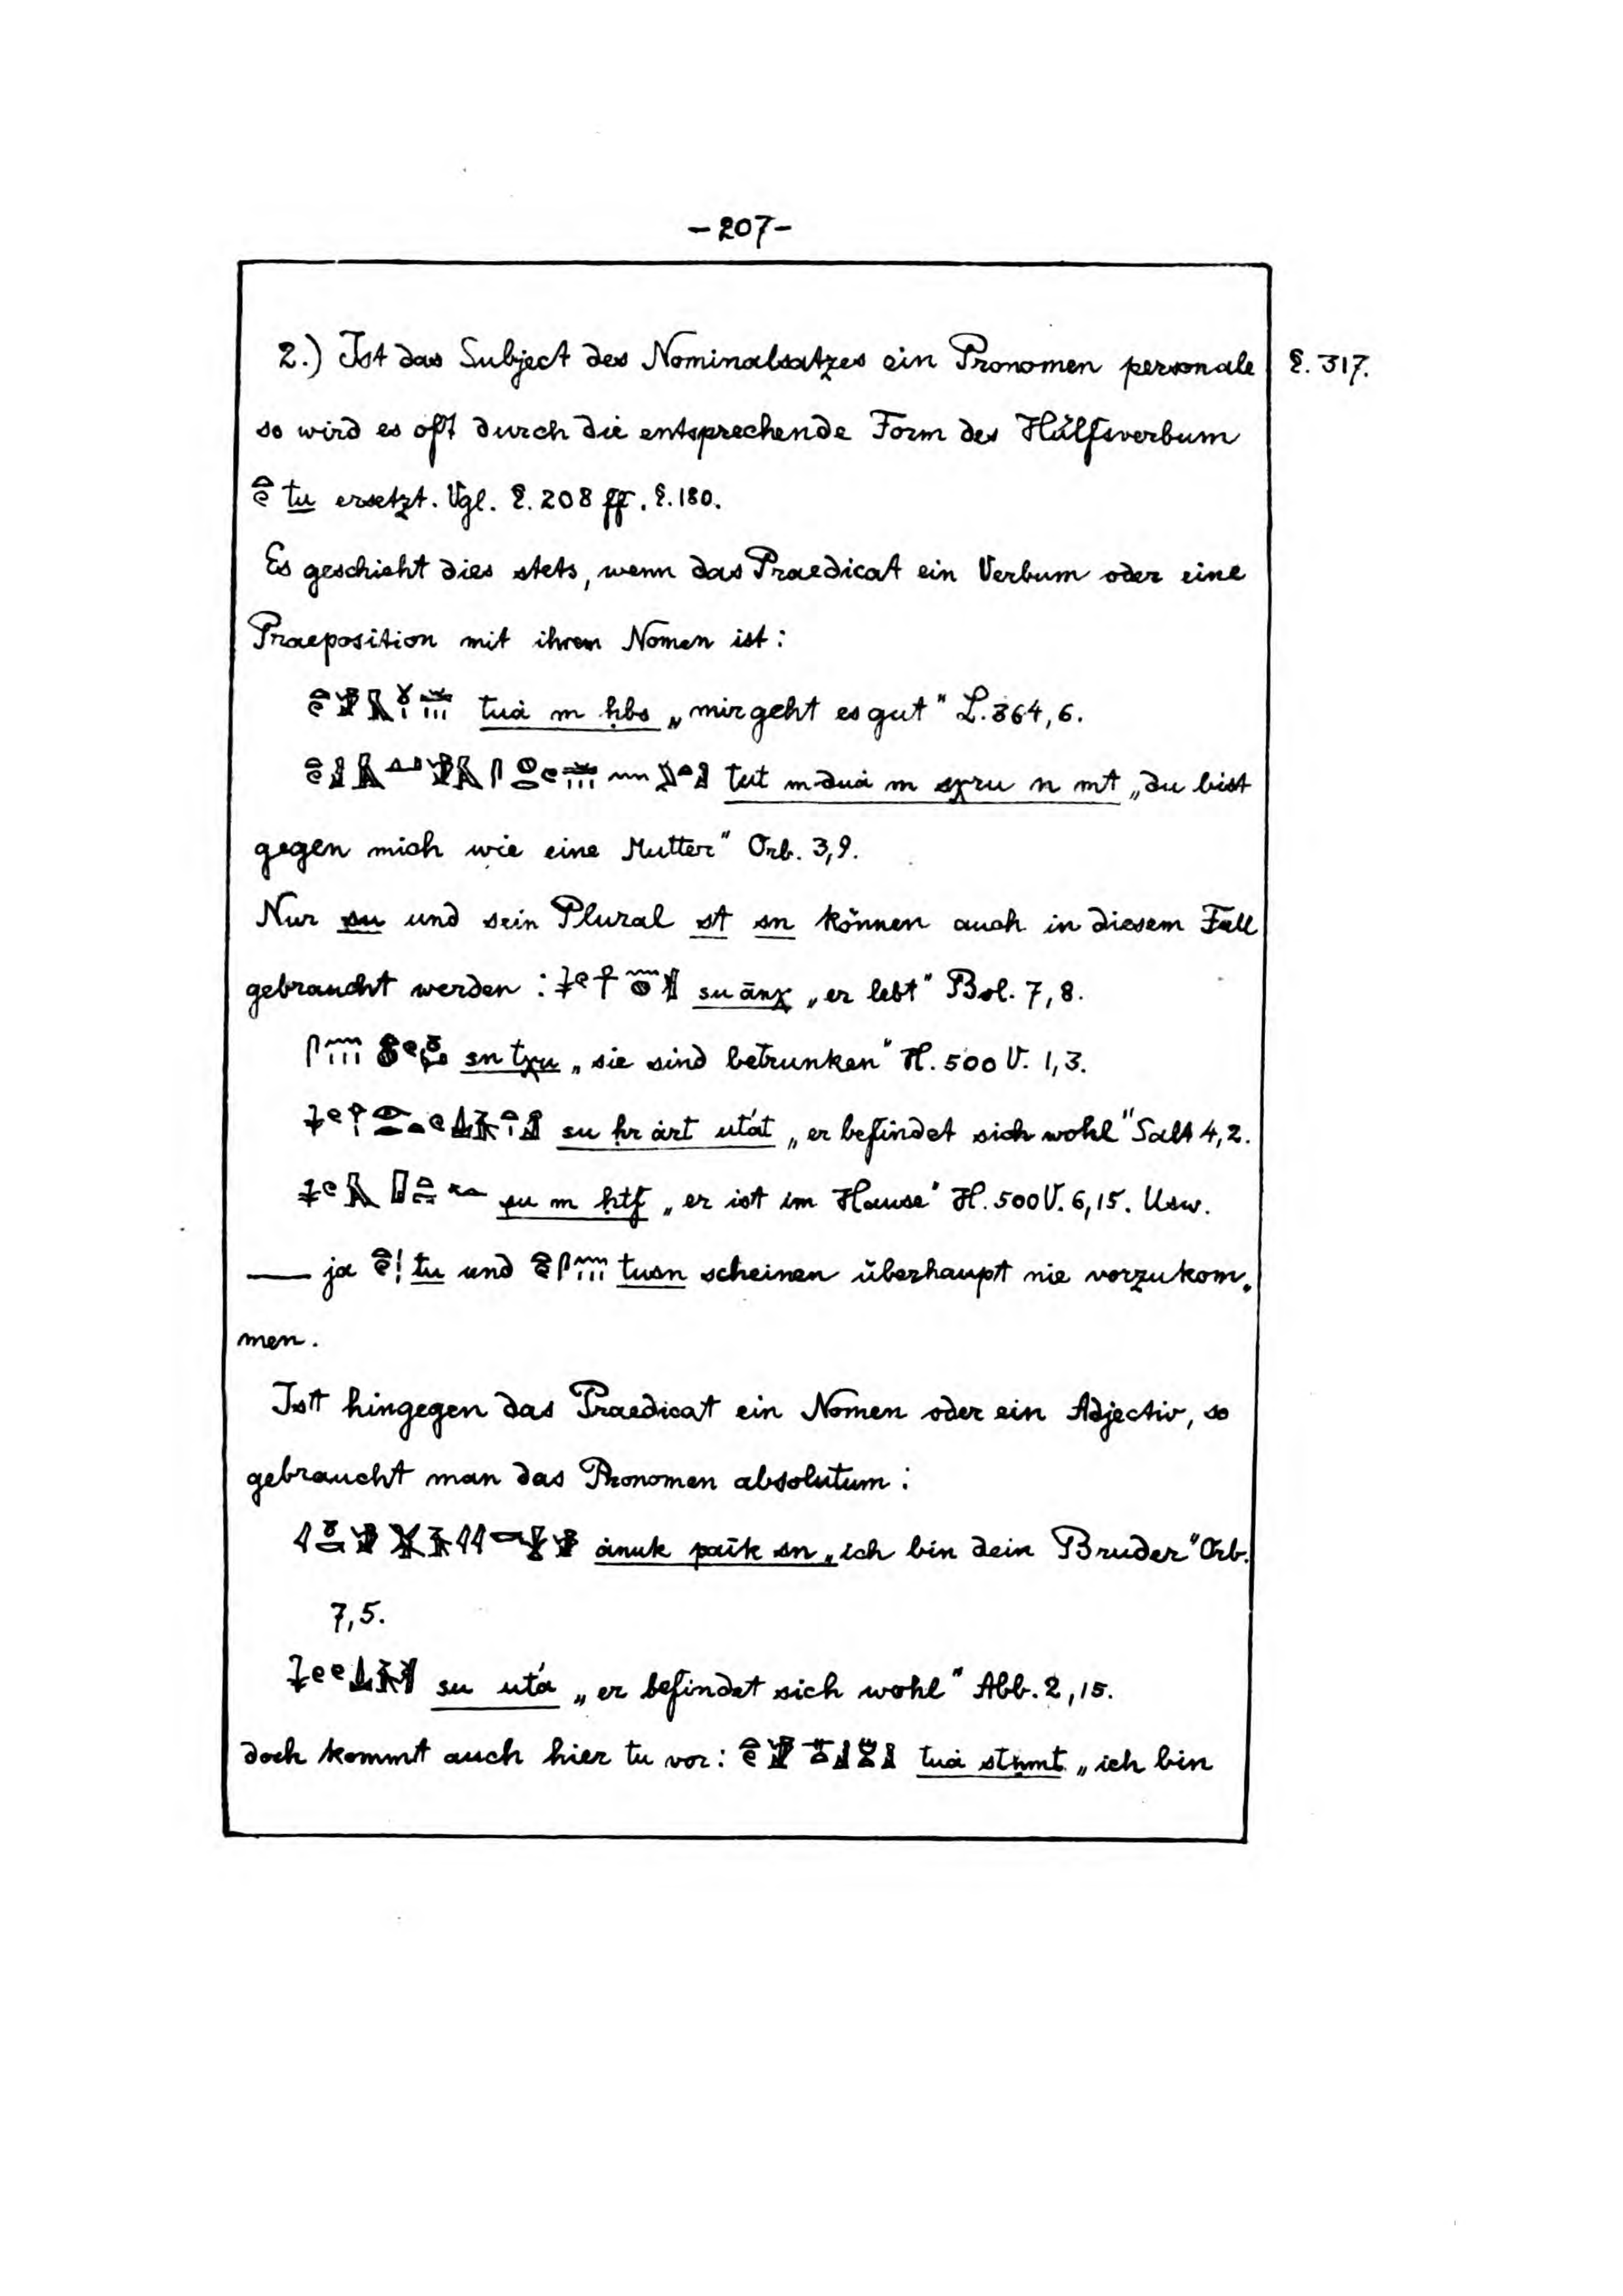 –207–
2.) Ist das Subject des Nominalsatzes ein Pronomen personale §. 317.
so wird es oft durch die entsprechende Form des Hülfsverbum
tu ersetzt. Vgl. §. 208 ff. §. 180.
Es geschieht dies stets, wenn das Praedicat ein Verbum oder eine
Praeposition mit ihrem Nomen ist:
tuȧ m ḥbs „mir geht es gut" L. 364, 6.
tut m-duȧ m sχru n mt „du bist
gegen mich wie eine Mutter" Orb. 3,9.
Nur su und sein Plural st sn können auch in diesem Fall
gebraucht werden: su ānχ „er lebt" Bol. 7, 8.
sn tχu „sie sind betrunken" H. 500 V. 1, 3.
su ḥr ȧrt utát „er befindet sich wohl" Salt 4, 2.
su m ḥtf „er ist im Hause" H. 500 V. 6, 15. Usw.
ja tu und tusn scheinen überhaupt nie vorzukom-
men.
Ist hingegen das Praedicat ein Nomen oder ein Adjectiv, so
gebraucht man das Pronomen absolutum:
ȧnuk paīk sn „ich bin dein Bruder" Orb.
7, 5.
su utá „er befindet sich wohl" Abb. 2, 15.
doch kommt auch hier tu vor: tuȧ „ich bin